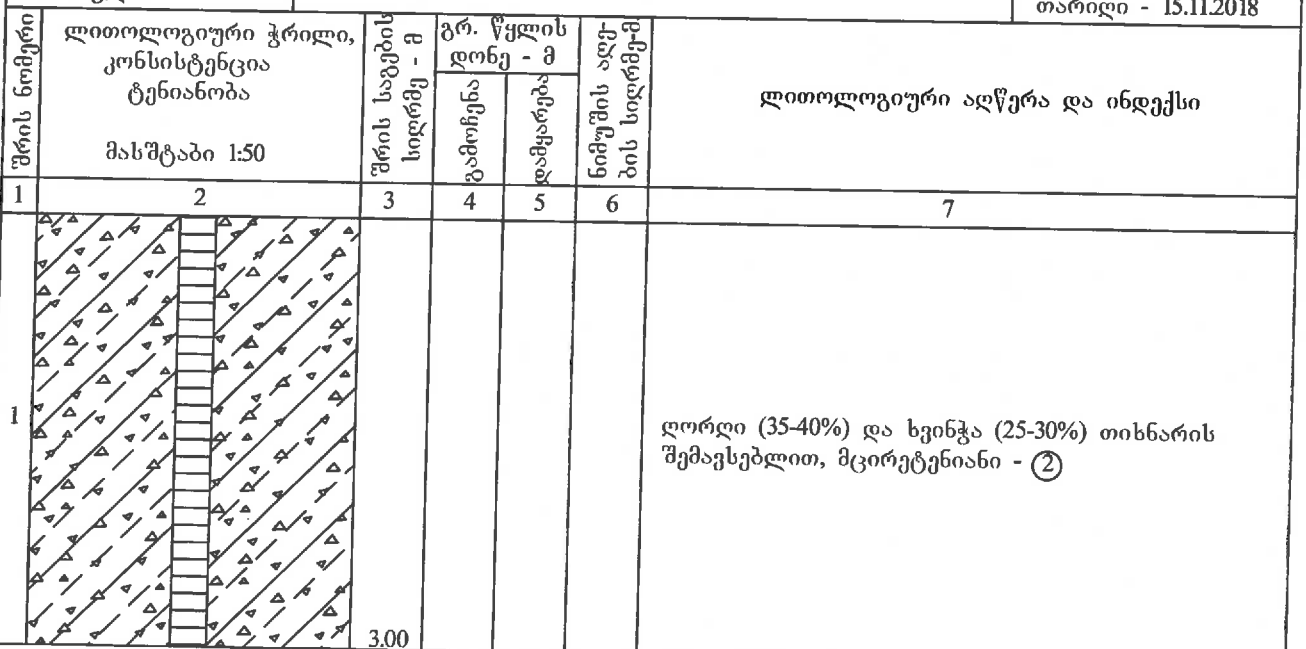 თარიღი - 15.11.2018
შრის ნომერი
ლითოლოგიური ჭრილი,
კონსისტენცია
ტენიანობა
მასშტაბი 1:50
შრის საგების
სიღრმე - მ
გრ. წყლის
დონე - მ
გამოჩენა
დამყარება
ნიმუშის აღე-
ბის სიღრმე-მ
ლითოლოგიური აღწერა და ინდექსი
1 2 3 4 5 6 7
1
ღორღი (35-40%) და ხვინჭა (25-30%) თიხნარის
შემავსებლით, მცირეტენიანი - 2
3.00